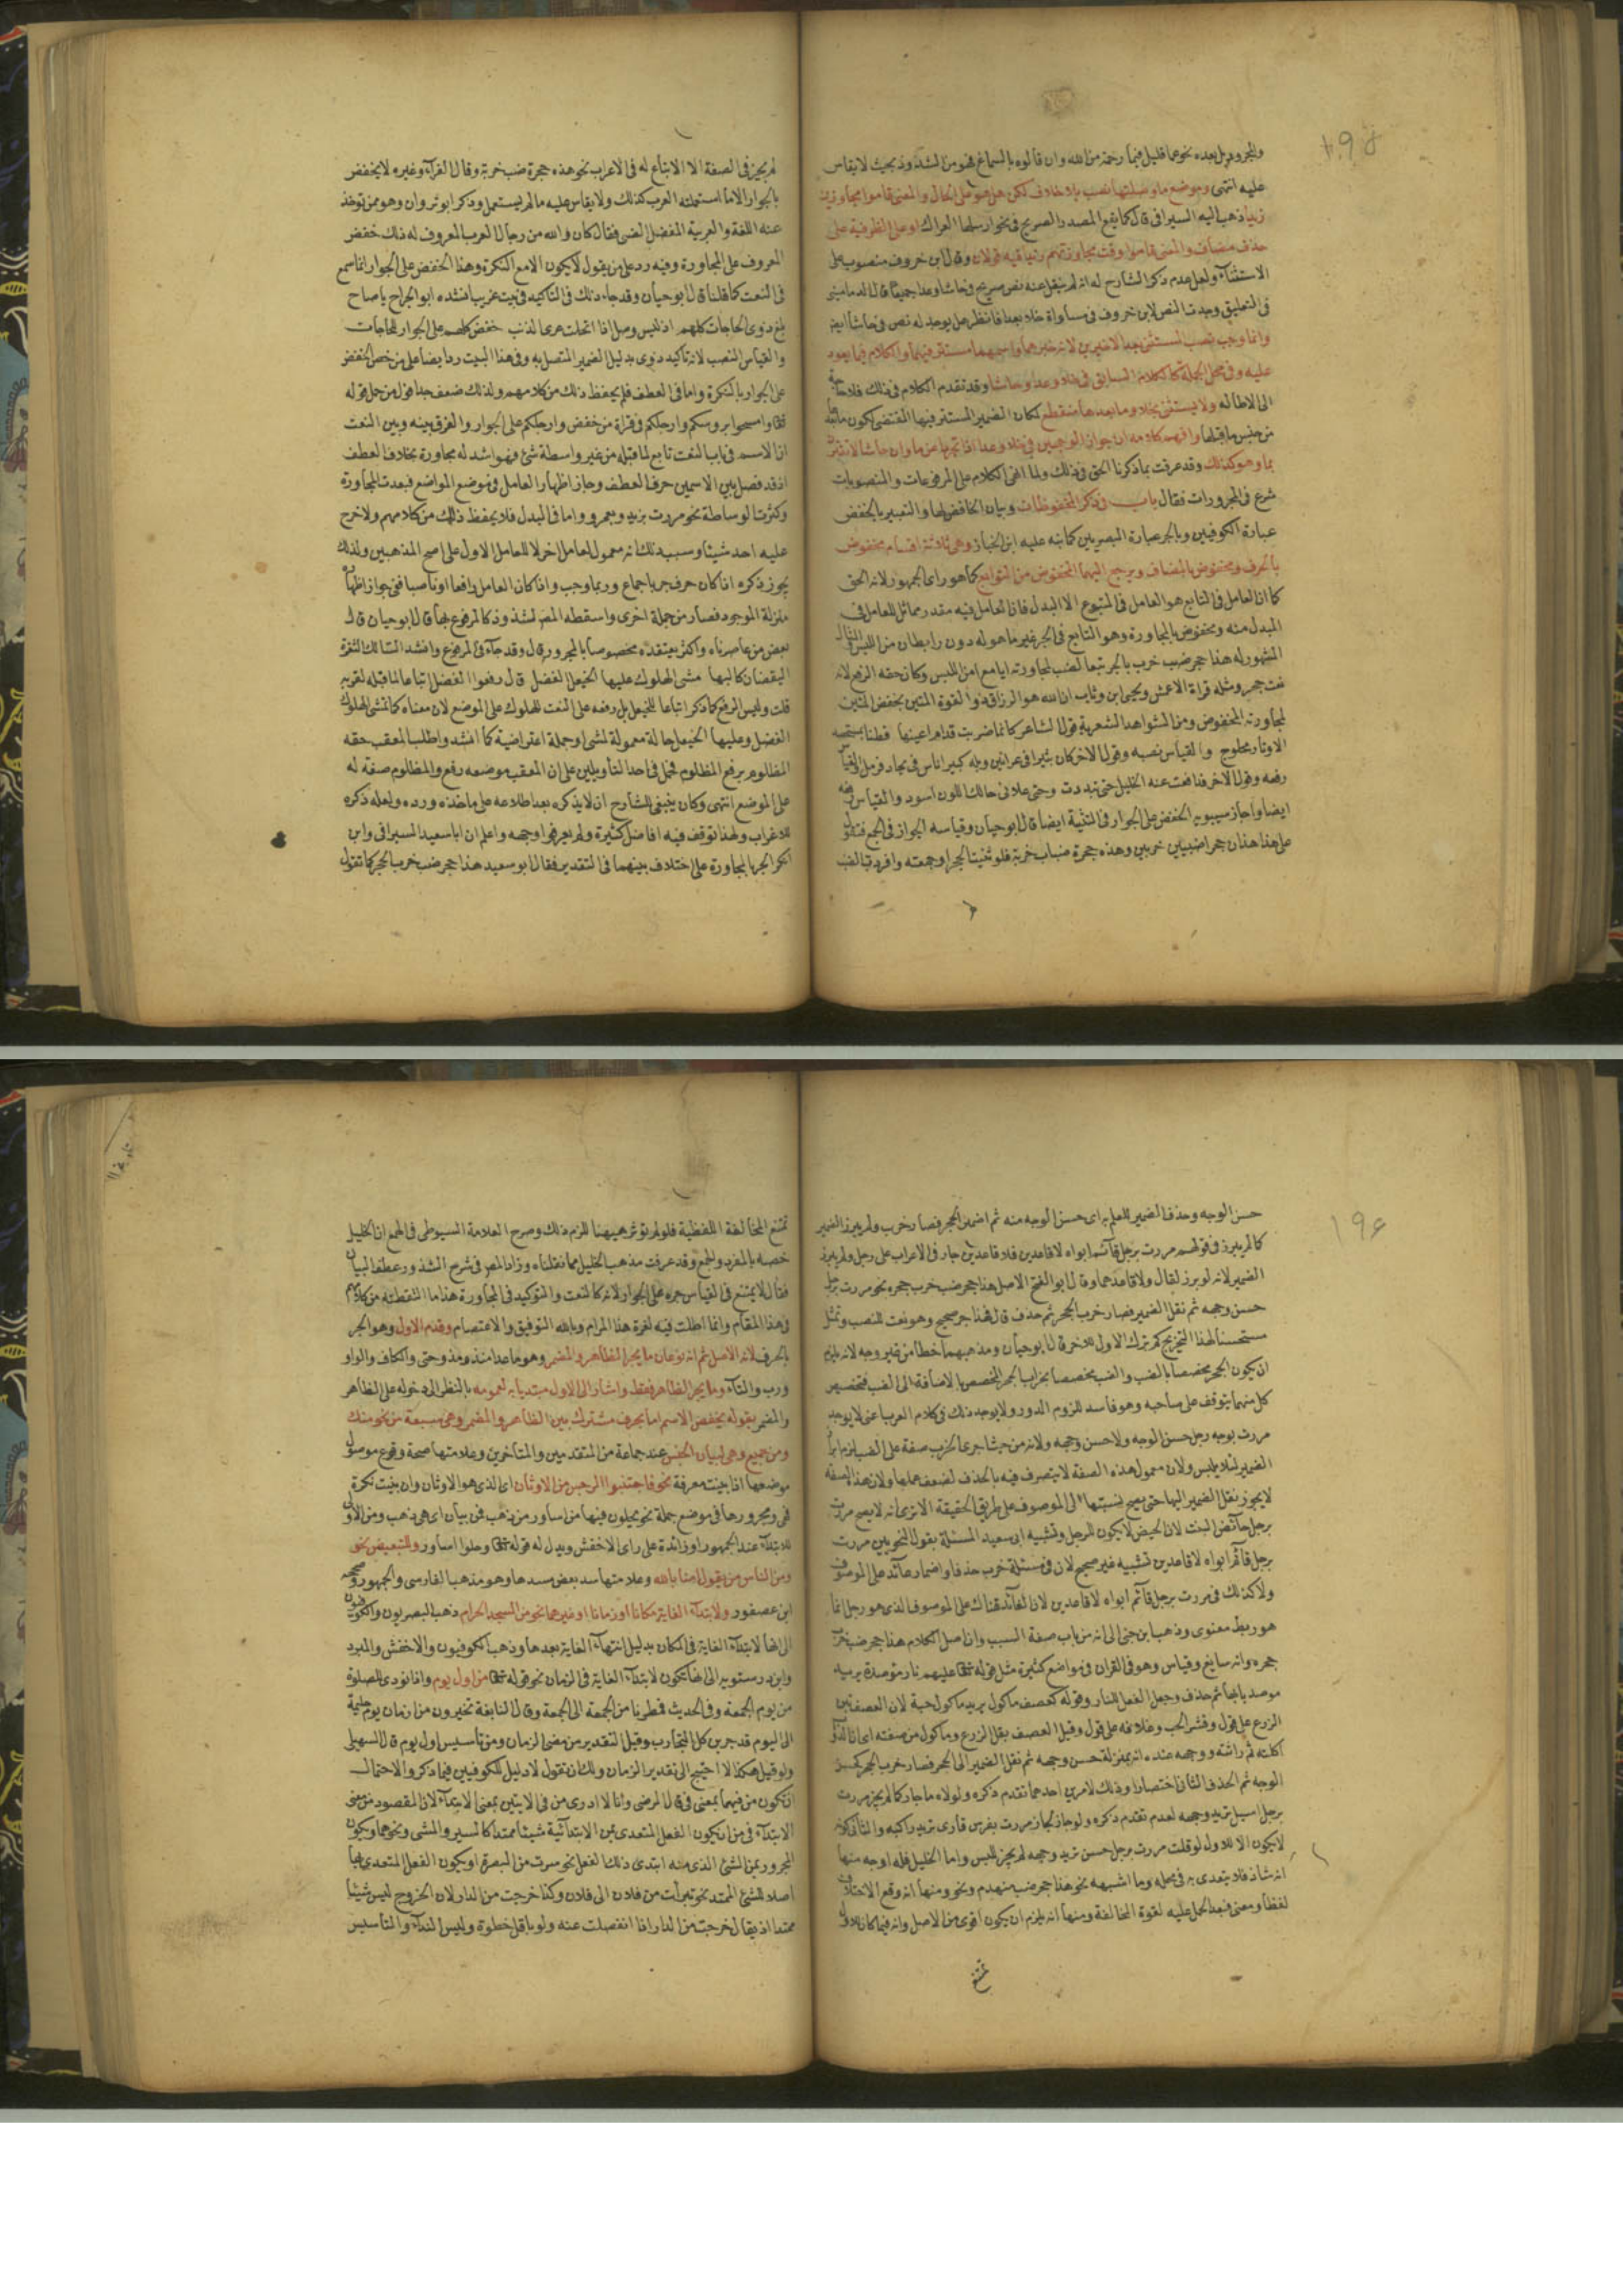 والمجرور بل بعده نحو عما قليل فبما رحمة من الله وان قالوه بالسماع فهو من الشذوذ بحيث لا يقاس
عليه انتهى وموضع ما وصلتها نصب بلا خلاف لكن هل هو على الحال والمعنى قاموا مجاوزين
زيدا ذهب اليه السيرافي قال كما يقع المصدر الصريح في نحو ارسلها العراك او على الظرفية على
حذف مضاف والمعنى قاموا وقت مجاوزتهم زيدا فيه قولان وقال ابن خروف منصوب على
الاستثناء ولعل عدم ذكر الشارح له انه لم ينقل عنه نص صريح في حاشا وعدا جميعا قال الدماميني
في التعليق وجدت النص لابن خروف في مساواة خلا بعدا فانظر هل يوجد له نص في حاشا ايضا
وانما وجب نصب المستثنى بعد الاخيرين لانه خبرهما واسمهما مستتر فيهما والكلام فيما يعود
عليه وفي محل الجملة كالكلام السابق في خلا وعدا وحاشا وقد تقدم الكلام في ذلك فلا حاجة
الى الاطالة ولا يستثنى بخلا وما بعدها منقطع لكان الضمير المستتر فيها المقتضى لكون ما بعدها
من جنس ما قبلها وافهم كلامه ان جواز الوجهين في خلا وعدا اذا تجردا عن ما وان حاشا لا تقترن
بما وهو كذلك وقد عرفت بما ذكرنا الحق في ذلك ولما انهى الكلام على المرفوعات والمنصوبات
شرع في المجرورات فقال باب في ذكر المخفوظات وبيان الخافض لها والتعبير بالخفض
عبارة الكوفيين وبالجر عبارة البصريين كما نبه عليه ابن الخباز وهي ثلاثة اقسام مخفوض
بالحرف ومخفوض بالمضاف ويرجع اليهما المخفوض من التوابع كما هو راى الجمهور لانه الحق
كما ان العامل في التابع هو العامل في المتبوع الا البدل فان العامل فيه مقدر مماثل للعامل في
المبدل منه ومخفوض بالمجاورة وهو التابع في الجر غير ما هو له دون رابط ان من اللبس المثال
المشهور له هذا حجر ضب خرب بالجر تبعا لضب لمجاورته اياه مع امن اللبس وكان حقه الرفع لانه
نعت جحر ومثله قراءة الاعمش ويحيى ابن وثاب ان الله هو الرزاق ذو القوة المتين بخفض المتين
لمجاورته المخفوض ومن الشواهد الشعرية قول الشاعر كانما ضربت قدام اعينها قطنا بمستحصد
الاوتار محلوج والقياس نصبه وقول الاخر كان ثبيرا في عرانين وبله كبير اناس في بجاد مزمل والقياس
رفعه وقول الاخر
ايضا واجاز سيبويه الخفض على الجوار في التثنية ايضا قال ابو حيان وقياسه الجواز في الجمع فتقول
على هذا هذان جحرا ضبين خربين وهذه جحرة ضباب خربة فلو ثنيت الجحر او جمعته وافردت الضب
لم يجز في الصفة الا الاتباع له في الاعراب نحو هذه جحرة ضب خربة وقال الفراء وغيره لا يخفض
بالجوار الا ما استعملته العرب كذلك ولا يقاس عليه ما لم يستعمل وذكر ابو ثروان وهو ممن توخذ
عنه اللغة والعربية المفضل الضبي فقال كان والله من رجال العرب المعروف له ذلك خفض
المعروف على المجاورة وفيه رد على من يقول لا يكون الا مع النكرة وهذا الخفض على الجوار انما سمع
في النعت كما قلنا قال ابو حيان وقد جاء ذلك في التاكيد في بيت غريب انشده ابو الجراح يا صاح
بلغ ذوى الحاجات كلهم ان ليس وصل اذا انحلت عرى الذنب خفض كلهم على الجوار للحاجات
والقياس النصب لانه تاكيد ذوى بدليل الضمير المتصل به وفي هذا البيت رد ايضا على من خص الخفض
على الجوار بالنكرة واما في العطف فلم يحفظ ذلك من كلامهم ولذلك ضعف جدا قول من حمل قوله
تعالى وامسحوا بروسكم وارجلكم في قراة من خفض وارجلكم على الجوار والفرق بينه وبين النعت
ان الاسم في باب النعت تابع لما قبله من غير واسطة شئ فهو اشد له مجاورة بخلاف العطف
اذ قد فصل بين الاسمين حرف العطف وجاز اظهار العامل في موضع المواضع فبعدت المجاورة
وكثرت الوساطة نحو مررت بزيد وبعمرو واما في البدل فلا يحفظ ذلك من كلامهم ولا خرج
عليه احد شيئا وسبب ذلك انه معمول لعامل اخر لا للعامل الاول على اصح المذهبين ولذلك
يجوز ذكره اذا كان حرف جر باجماع وربما وجب واذا كان العامل رافعا او ناصبا ففي جواز اظهاره
منزلة الموجود فصار من جملة اخرى واسقطه المص لشذوذ كالمرفوع بها قال ابو حيان قال
بعض من عاصرناه واكثر يعتقده مخصوصا بالمجرور قال وقد جاء في المرفوع وانشد السالك الثغرة
اليقظان كالبها مشى الهلوك عليها الخيعل الفضل قال رفعوا الفضل اتباعا لما قبله لقربه
قلت وليس الرفع كما ذكر اتباعا للخيعل بل رفعه على النعت للهلوك على الموضع لان معناه كما تمشى الهلوك
الفضل وعليها الخيعل حالة معمولة لمشى او جملة اعتراضية كما انشد واطلب المعقب حقه
المظلوم برفع المظلوم فحمل في احد التاويلين على ان المعقب موضعه رفع والمظلوم صفة له
على الموضع انتهى وكان ينبغي للشارح ان لا يذكره بعد اطلاعه على ماخذه ورده ولعله ذكره
للاغراب ولهذا توقف فيه افاضل كثيرة ولم يعرفوا وجهه واعلم ان ابا سعيد السيرافي وابن
انكر الجر بالمجاورة على اختلاف بينهما في التقدير فقال ابو سعيد هذا جحر ضب خرب الجحر كما تقول
١٩٤
حسن الوجه وحذف الضمير للعلم به اى حسن الوجه منه ثم اضمر الجحر فصار خرب ولم يبرز الضمير
كما لم يبرز في قولهم مررت برجل قائم ابواه لا قاعدين فلا قاعدين جار في الاعراب على رجل ولم يبرز
الضمير لانه لو برز لقال ولا قاعد هما وقال ابو الفتح الاصل هذا جحر ضب خرب جحره نحو مررت برجل
حسن وجهه ثم نقل الضمير فصار خرب الجحر ثم حذف قال فهذا جر صحيح وهو نعت للضب وتمثل
مستحسنا لهذا التخريج كم ترك الاول للاخر قال ابو حيان ومذهبهما خطا من غير وجه لانه يلزم
ان يكون الجحر مخصصا بالضب والضب مخصصا بخراب الجحر المخصص بالاضافة الى الضب فتخصيص
كل منهما يتوقف على صاحبه وهو فاسد للزوم الدور ولا يوجد ذلك في كلام العرب اعنى لا يوجد
مررت بوجه رجل حسن الوجه ولا حسن وجهه ولانه من حيث اجرى الخرب صفة على الضب لزم ابراز
الضمير لئلا يلبس ولان معمول هذه الصفة لا يتصرف فيه بالحذف لضعف عملها ولان هذه الصفة
لا يجوز نقل الضمير اليها حتى يصح نسبتها الى الموصوف على طريق الحقيقة الا ترى انه لا يصح مررت
برجل حائض البنت لان الحيض لا يكون للرجل وتشبيه ابى سعيد المسئلة بقول النحويين مررت
برجل قائم ابواه لا قاعدين تشبيه غير صحيح لان في مسئلة خرب حذفا واضمار عائد على الموصوف
ولا كذلك في مررت برجل قائم ابواه لا قاعدين لان العائد هناك على الموصوف الذى هو رجل انما
هو ربط معنوى وذهب ابن جنى الى انه من باب صفة السبب وان اصل الكلام هذا جحر ضب خرب
جحره وانه سايغ وقياس وهو في القران في مواضع كثيرة مثل قوله تعالى عليهم نار موصدة يريد
موصد بابها ثم حذف وجعل الفعل للنار وقوله كعصف ماكول يريد ماكول حبه لان العصف تبن
الزرع على قول وقشر الحب وغلافه على قول وقيل العصف بقل الزرع وماكول من صفته
اكلته ثم راثته ووجهه عنده انه بمنزلة حسن وجهه ثم نقل الضمير الى الجحر فصار خرب الجحر كحسن
الوجه ثم الحذف الثانى اختصارا وذلك لامرين احدهما تقدم ذكره ولولاه ما جاز كما لم يجز مررت
برجل اسيل تريد وجهه لعدم تقدم ذكره ولو جاز لجاز مررت بفرس قارى تريد راكبه والثانى كونه
لا يكون الا للاول لو قلت مررت برجل حسن تريد وجهه لم يجز للبس واما الخليل فله اوجه منها
انه شاذ فلا يتعدى به في محله وما اشبهه نحو هذا جحر ضب منهدم ونحو ومنها انه وقع الاختلاف
لفظا ومعنى فبعد الحمل عليه لقوة المخالفة ومنها انه يلزم ان يكون اقوى من الاصل وانه فيما كان للاول
تمتنع
تمتنع المخالفة اللفظية فلو لم يؤثر هيهنا للزم ذلك وصرح العلامة السيوطى في الجمع ان الخليل
خصه بالمفرد والجمع وقد عرفت مذهب الخليل مما نقلناه وزاد المص في شرح الشذور عطف البيان
فقال لا يمتنع في القياس جره على الجوار لانه كالنعت والتوكيد في المجاورة هذا ما التقطته من كلامهم
في هذا المقام وانما اطلت فيه لغرة هذا المرام وبالله التوفيق والاعتصام وقدم الاول وهو الجر
بالحرف لانه الاصل ثم انه نوعان ما يجر الظاهر والمضمر وهو ما عدا منذ ومذ وحتى والكاف والواو
ورب والتاء وما يجر الظاهر فقط واشار الى الاول مبتدياً به لعمومه بالنظر الى دخوله على الظاهر
والمضمر بقوله يخفض الاسم اما بحرف مشترك بين الظاهر والمضمر وهي سبعة من نحو منك
ومن جميع وهي لبيان الجنس عند جماعة من المتقدمين والمتاخرين وعلامتها صحة وقوع موصول
موضعها اذا بينت معرفة نحو فاجتنبوا الرجس من الاوثان اى الذى هو الاوثان وان بينت نكرة
فهى ومجرورها في موضع جملة نحو يحلون فيها من اساور من ذهب فمن بيان اى هى ذهب ومن الاولى
للابتداء عند الجمهور او زائدة على راى الاخفش ويدل له قوله تعالى وحلوا اساور وللتبعيض نحو
ومن الناس من يقول امنا بالله وعلامتها سد بعض مسدها وهو مذهب الفارسى والجمهور وصححه
ابن عصفور ولابتداء الغاية مكانا او زمانا او غيرهما نحو من المسجد الحرام ذهب البصريون والكوفيون
الى انها لابتداء الغاية في المكان بدليل انتهاء الغاية بعدها وذهب الكوفيون والاخفش والمبرد
وابن درستويه الى انها تكون لابتداء الغاية في الزمان نحو قوله تعالى من اول يوم واذا نودى للصلوة
من يوم الجمعة وفي الحديث فمطرنا من الجمعة الى الجمعة وقال النابغة تخيرن من ازمان يوم حليمة
الى اليوم قد جربن كل التجارب وقيل التقدير من مضى الزمان ومن تأسيس اول يوم قال السهيلى
ولو قيل هكذا لا احتيج الى تقدير الزمان ولك ان تقول لا دليل للكوفيين فيما ذكر والاحتمال
ان تكون من فيهما بمعنى في قال الرضى وانا لا ادرى من في الايتين بمعنى الابتداء لان المقصود من معنى
الابتداء في من ان يكون الفعل المتعدى بمن الابتدائية شيئا ممتدا كالسير والمشى ونحوهما ويكون
المجرور بمن الشئ الذى منه ابتدى ذلك الفعل نحو سرت من البصرة او يكون الفعل المتعدى بها
اصلا للشئ الممتد نحو تبرات من فلان الى فلان وكذا خرجت من الدار لان الخروج ليس شيئا
ممتدا اذ يقال خرجت من الدار اذا انفصلت عنه ولو باقل خطوة وليس النداء والتأسيس